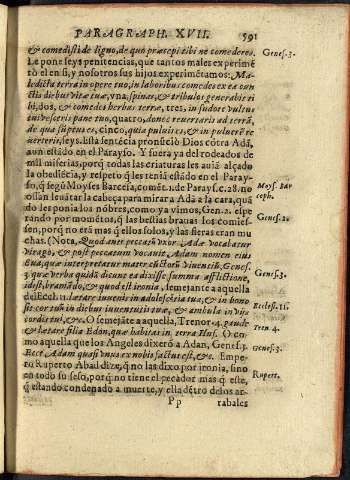 PARAGRAPH. XVII. 591
& comedisti de ligno, de quo præcepi tibi ne comederes. Genes. 3.
Le pone seys penitencias, que tantos males experimẽ
tò el en si, y nosotros sus hijos experimẽtamos: Ma-
ledicta terra in opere tuo, in laboribus comedes ex ea cun
ctis diebus vitæ tuæ, vna, spinas, & tribulos generabit ti
bi, dos, & comedes herbas terræ, tres, in sudore vultus
tui vesceris pane tuo, quatro, donec reuertaris ad terrã,
de qua sumptus es, cinco, quia puluis es, & in puluerẽ re
uerteris, seys. Esta sentẽcia pronũciò Dios cõtra Adã,
aun estãdo en el Parayso. Y fuera ya del rodeados de
mil miserias, porq̃ todas las criaturas les auiã alçado
la obediẽcia, y respeto q̃ les teniã estãdo en el Paray-
so, q̃ segũ Moyses Barcefa, comẽt. 1. de Parays. c. 28. no Moys. Bar
ossan leuãtar la cabeça para mirar a Adã a la cara, quã ceph.
do les ponia los nõbres, como ya vimos, Gen. 2. espe Genes. 2.
rando por momẽtos, q̃ las bestias brauas los comies-
sen, porq̃ no erã mas q̃ ellos solos, y las fieras eran mu
chas. (Nota, Quod ante peccatũ vxor Adæ vocabatur
virago, & post peccatum vocauit Adam nomen eius
Eua, quæ interpretatur mater cũctorũ viuentiũ. Genes.
3. quæ verba quidã dicunt ea dixisse summa afflictione, Genes. 3.
idest, bramãdo, & quod est ironia, semejante a aquella
del Eccl. 11. lætare iuuenis in adolescẽtia tua, & in bono Ecclesi. 11.
sit cor tuũ in diebus iuuentutis tuæ, & ambula in vijs
cordis tui, &c. O semejãte a aquella, Tren. 4. gaude Tren. 4.
& lætare filia Edon, quæ habitas in terra Hus. O co-
mo aquella que los Angeles dixerõ a Adan, Genes. 3. Genes. 3.
Ecce Adam quasi vnus ex nobis factus est, &c. Empe-
ro Ruperto Abad dize, q̃ no las dixo por ironia, sino Rupert.
en todo su seso, porq̃ no tiene el pecador mas q̃ este,
q̃ estando condenado a muerte, y ella dẽtro de los ar-
Pp rabales